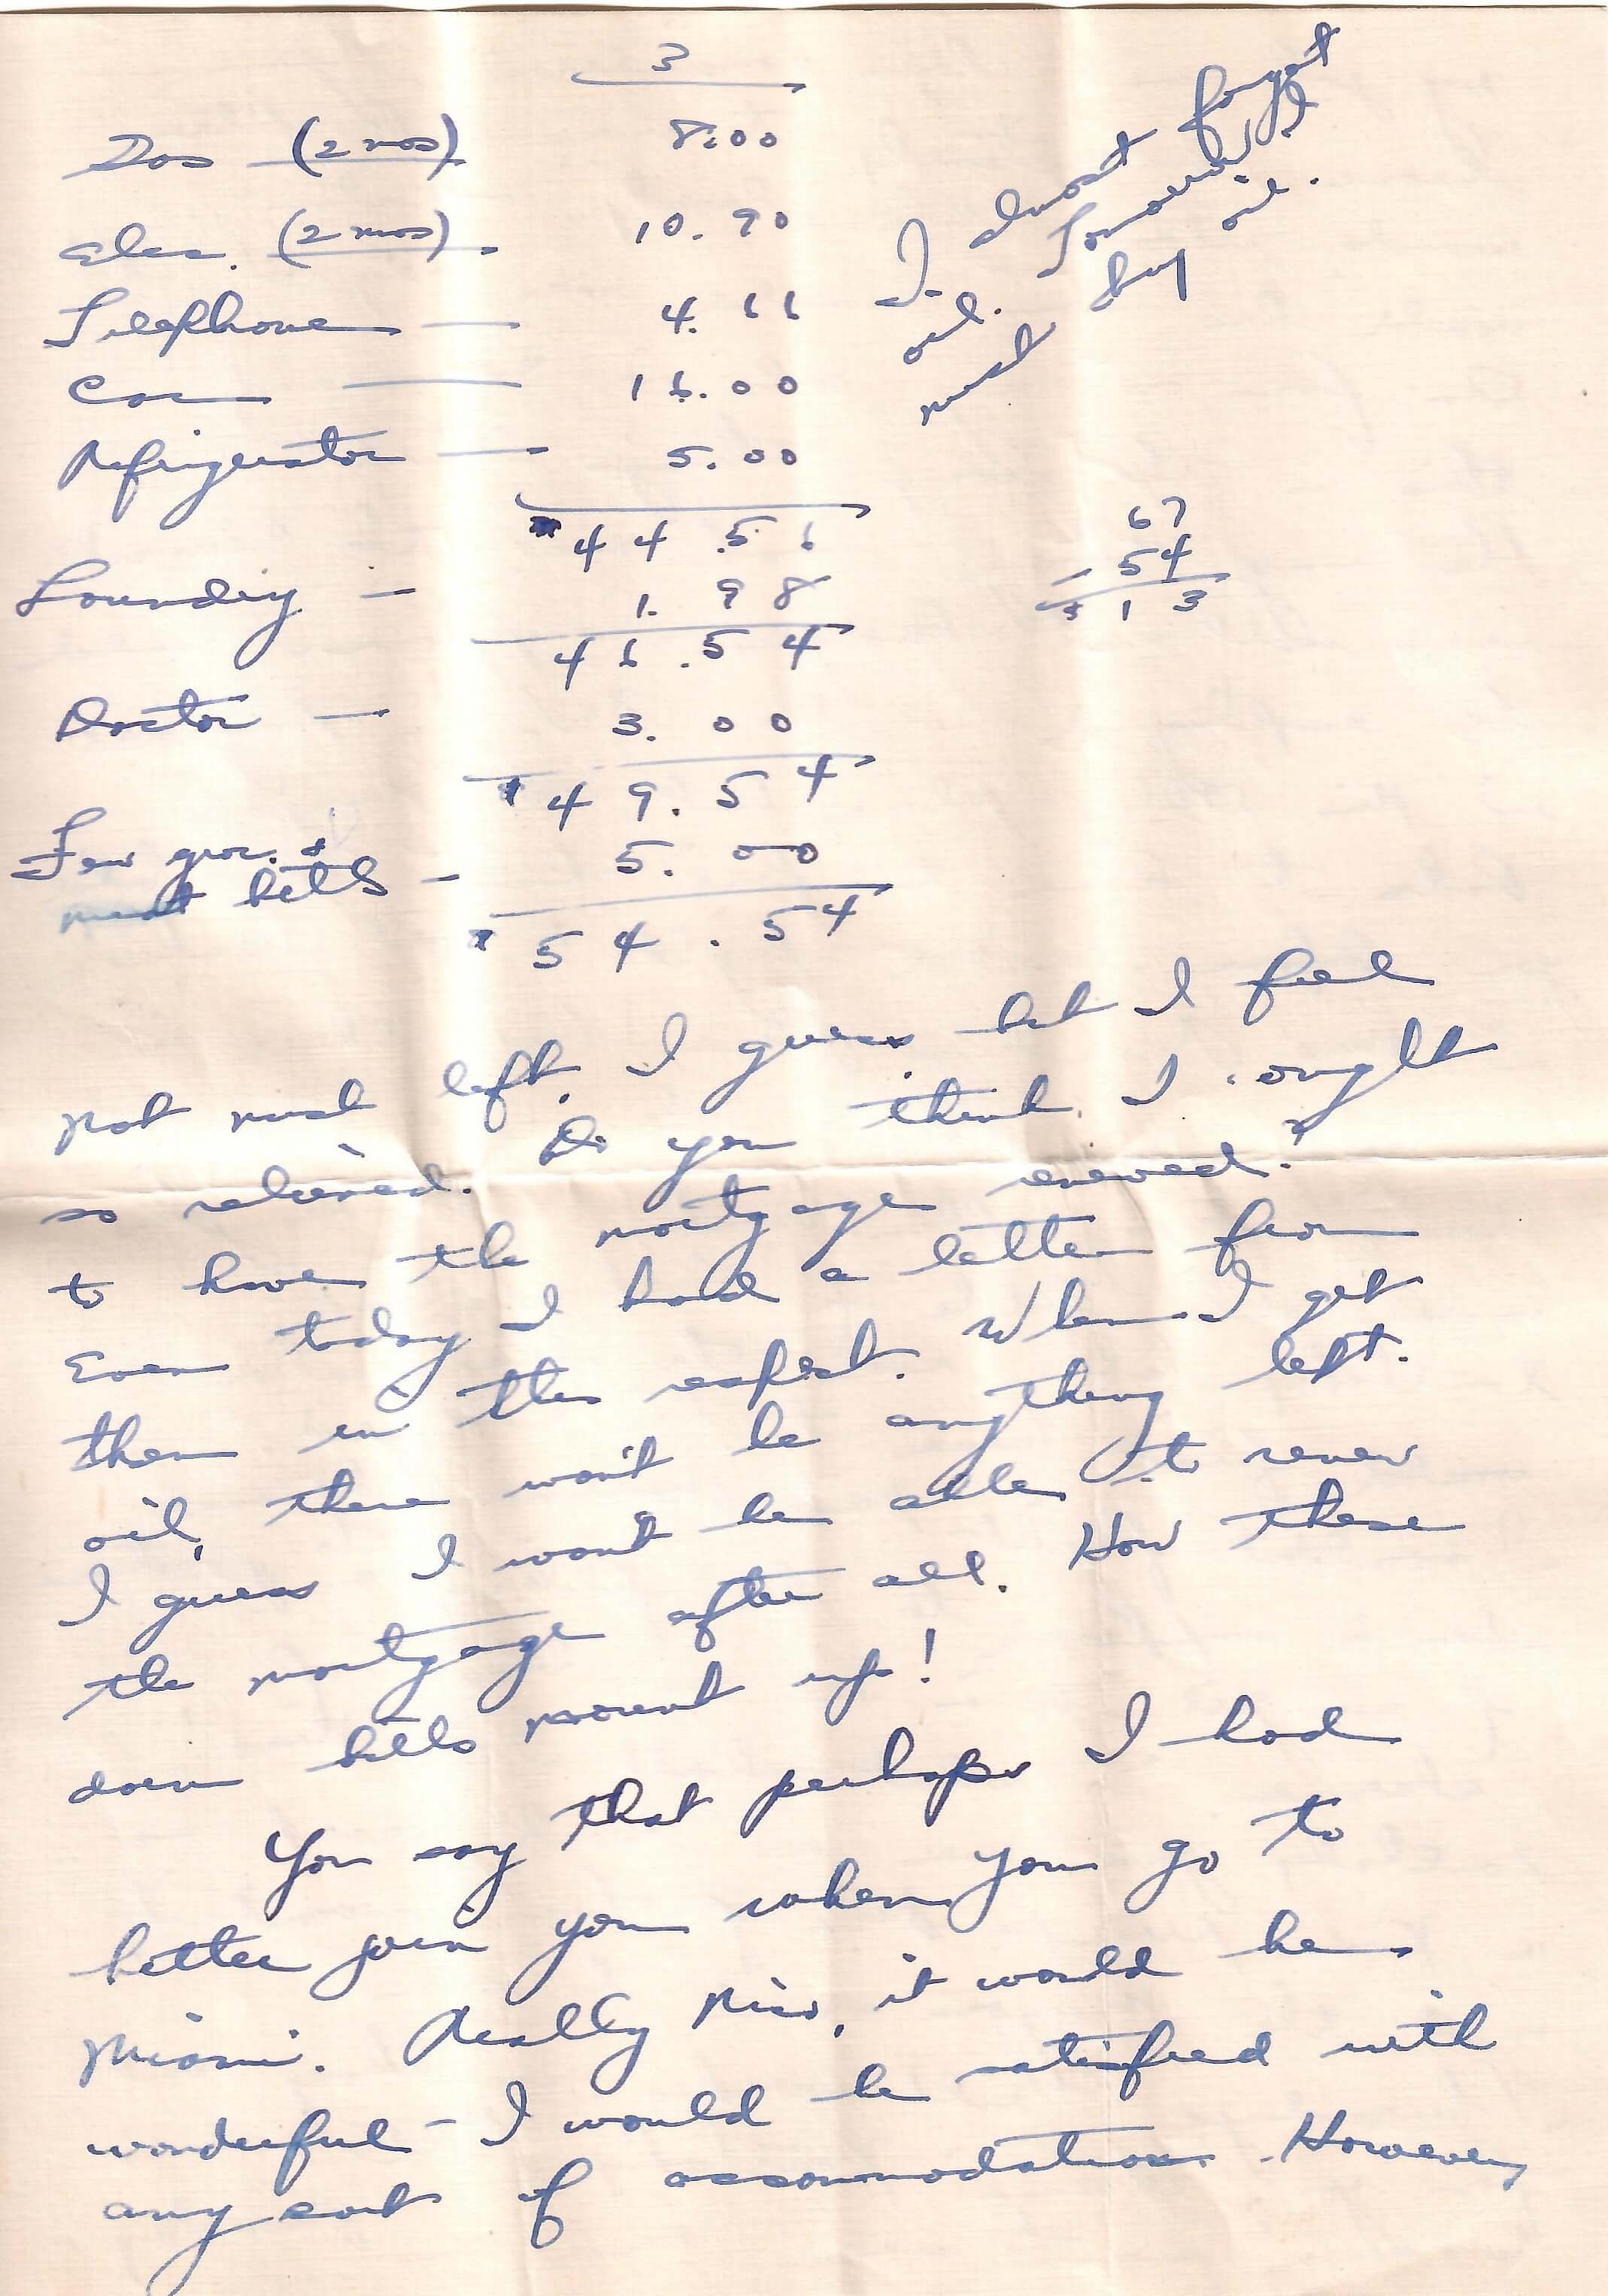 3
Gas (2 mos) 8.00
Elec. (2 mos) - 10.90
Telephone — 4.66
Car — 16.00
Refrigerator — 5.00
$44.56
Laundry — 1.98
46.54
Doctor — 3.00
$49.54
Few groc. &
meat bills - 5.00
$54.54
I almost forgot
oil. Tomorrow I
must buy oil.
67
- 54
$13
Not much left, I guess but I feel
so relieved. Do you think I ought
to have the mortgage renewed?
Even today I had a letter from
them in this respect. When I get
oil, there won't be anything left.
I guess I won't be able to renew
the mortgage after all. How these
darn bills mount up!
You say that perhaps I had
better join you when you go to
Miami. Really it would be
wonderful - I would be satisfied with
any sort of accommodation. However,